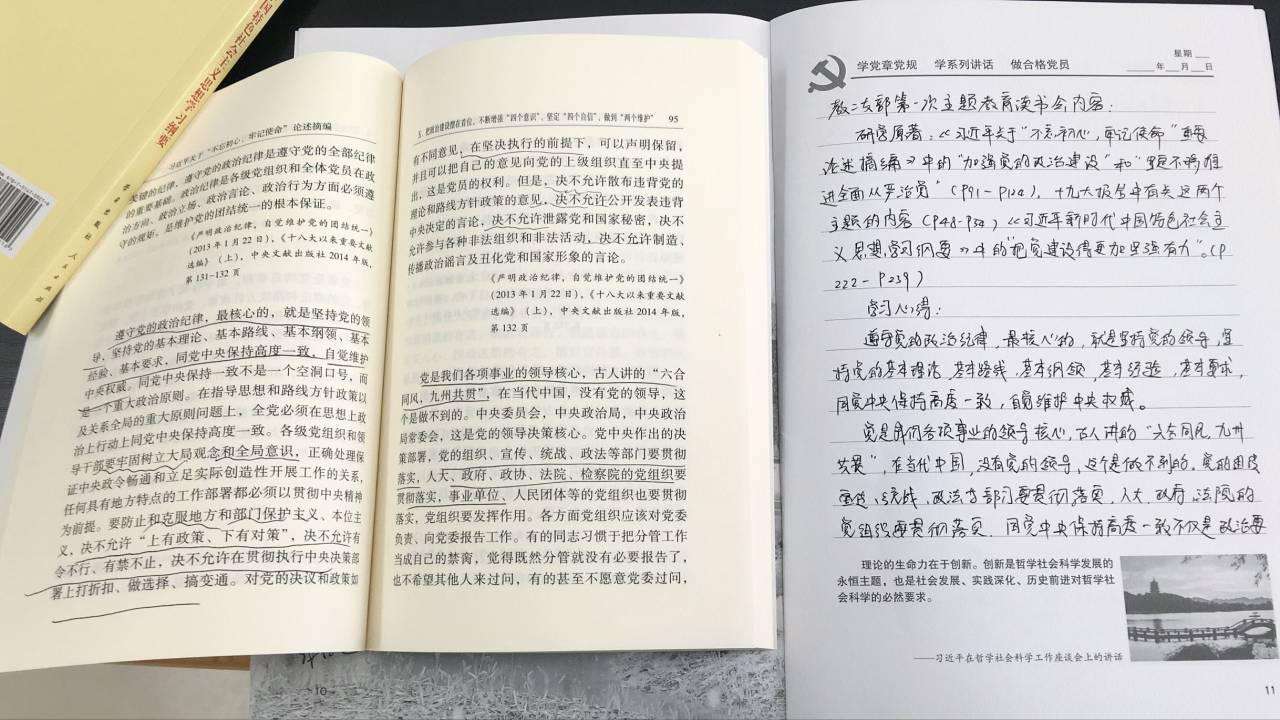 国特色社会主义思想学习纲要
学习出版社 人民出版社
习近平关于“不忘初心、牢记使命”论述摘编
关键的纪律，遵守党的政治纪律是遵守党的全部纪律
的重要基础。政治纪律是各级党组织和全体党员在政
治方向、政治立场、政治言论、政治行为方面必须遵
守的规矩，是维护党的团结统一的根本保证。
《严明政治纪律，自觉维护党的团结统一》
（2013年1月22日），《十八大以来重要文献
选编》（上），中央文献出版社2014年版，
第131—132页
遵守党的政治纪律，最核心的，就是坚持党的领
导，坚持党的基本理论、基本路线、基本纲领、基本
经验、基本要求，同党中央保持高度一致，自觉维护
中央权威。同党中央保持一致不是一个空洞口号，而
是一个重大政治原则。在指导思想和路线方针政策以
及关系全局的重大原则问题上，全党必须在思想上政
治上行动上同党中央保持高度一致。各级党组织和领
导干部要牢固树立大局观念和全局意识，正确处理保
证中央政令畅通和立足实际创造性开展工作的关系，
任何具有地方特点的工作部署都必须以贯彻中央精神
为前提。要防止和克服地方和部门保护主义、本位主
义，决不允许“上有政策、下有对策”，决不允许有
令不行、有禁不止，决不允许在贯彻执行中央决策部
署上打折扣、做选择、搞变通。对党的决议和政策如
五、把政治建设摆在首位，不断增强“四个意识”、坚定“四个自信”、做到“两个维护” 95
有不同意见，在坚决执行的前提下，可以声明保留，
并且可以把自己的意见向党的上级组织直至中央提
出，这是党员的权利。但是，决不允许散布违背党的
理论和路线方针政策的意见，决不允许公开发表违背
中央决定的言论，决不允许泄露党和国家秘密，决不
允许参与各种非法组织和非法活动，决不允许制造、
传播政治谣言及丑化党和国家形象的言论。
《严明政治纪律，自觉维护党的团结统一》
（2013年1月22日），《十八大以来重要文献
选编》（上），中央文献出版社2014年版，
第132页
党是我们各项事业的领导核心，古人讲的“六合
同风，九州共贯”，在当代中国，没有党的领导，这
个是做不到的。中央委员会，中央政治局，中央政治
局常委会，这是党的领导决策核心。党中央作出的决
策部署，党的组织、宣传、统战、政法等部门要贯彻
落实，人大、政府、政协、法院、检察院的党组织要
贯彻落实，事业单位、人民团体等的党组织也要贯彻
落实，党组织要发挥作用。各方面党组织应该对党委
负责、向党委报告工作。有的同志习惯于把分管工作
当成自己的禁脔，觉得既然分管就没有必要报告了，
也不希望其他人来过问，有的甚至不愿意党委过问，
10
学党章党规 学系列讲话 做合格党员
星期
年 月 日
教二支部第一次主题教育读书会内容：
研学原著：《习近平关于“不忘初心，牢记使命”重要
论述摘编》中的“加强党的政治建设”和“坚定不移推
进全面从严治党”（P91－P124），十九大报告中有关这两个
主题的内容（P48－P54）《习近平新时代中国特色社会主
义思想学习纲要》中的“把党建设得更加坚强有力”。（P
222－P239）
学习心得：
遵守党的政治纪律，最核心的，就是坚持党的领导，坚
持党的基本理论，基本路线，基本纲领，基本经验，基本要求，
同党中央保持高度一致，自觉维护中央权威。
党是我们各项事业的领导核心，古人讲的“六合同风，九州
共贯”，在当代中国，没有党的领导，这个是做不到的。党的组织
宣传、统战、政法等部门要贯彻落实，人大、政府、法院的
党组织要贯彻落实。同党中央保持高度一致不仅是政治要
理论的生命力在于创新。创新是哲学社会科学发展的
永恒主题，也是社会发展、实践深化、历史前进对哲学社
会科学的必然要求。
——习近平在哲学社会科学工作座谈会上的讲话
11